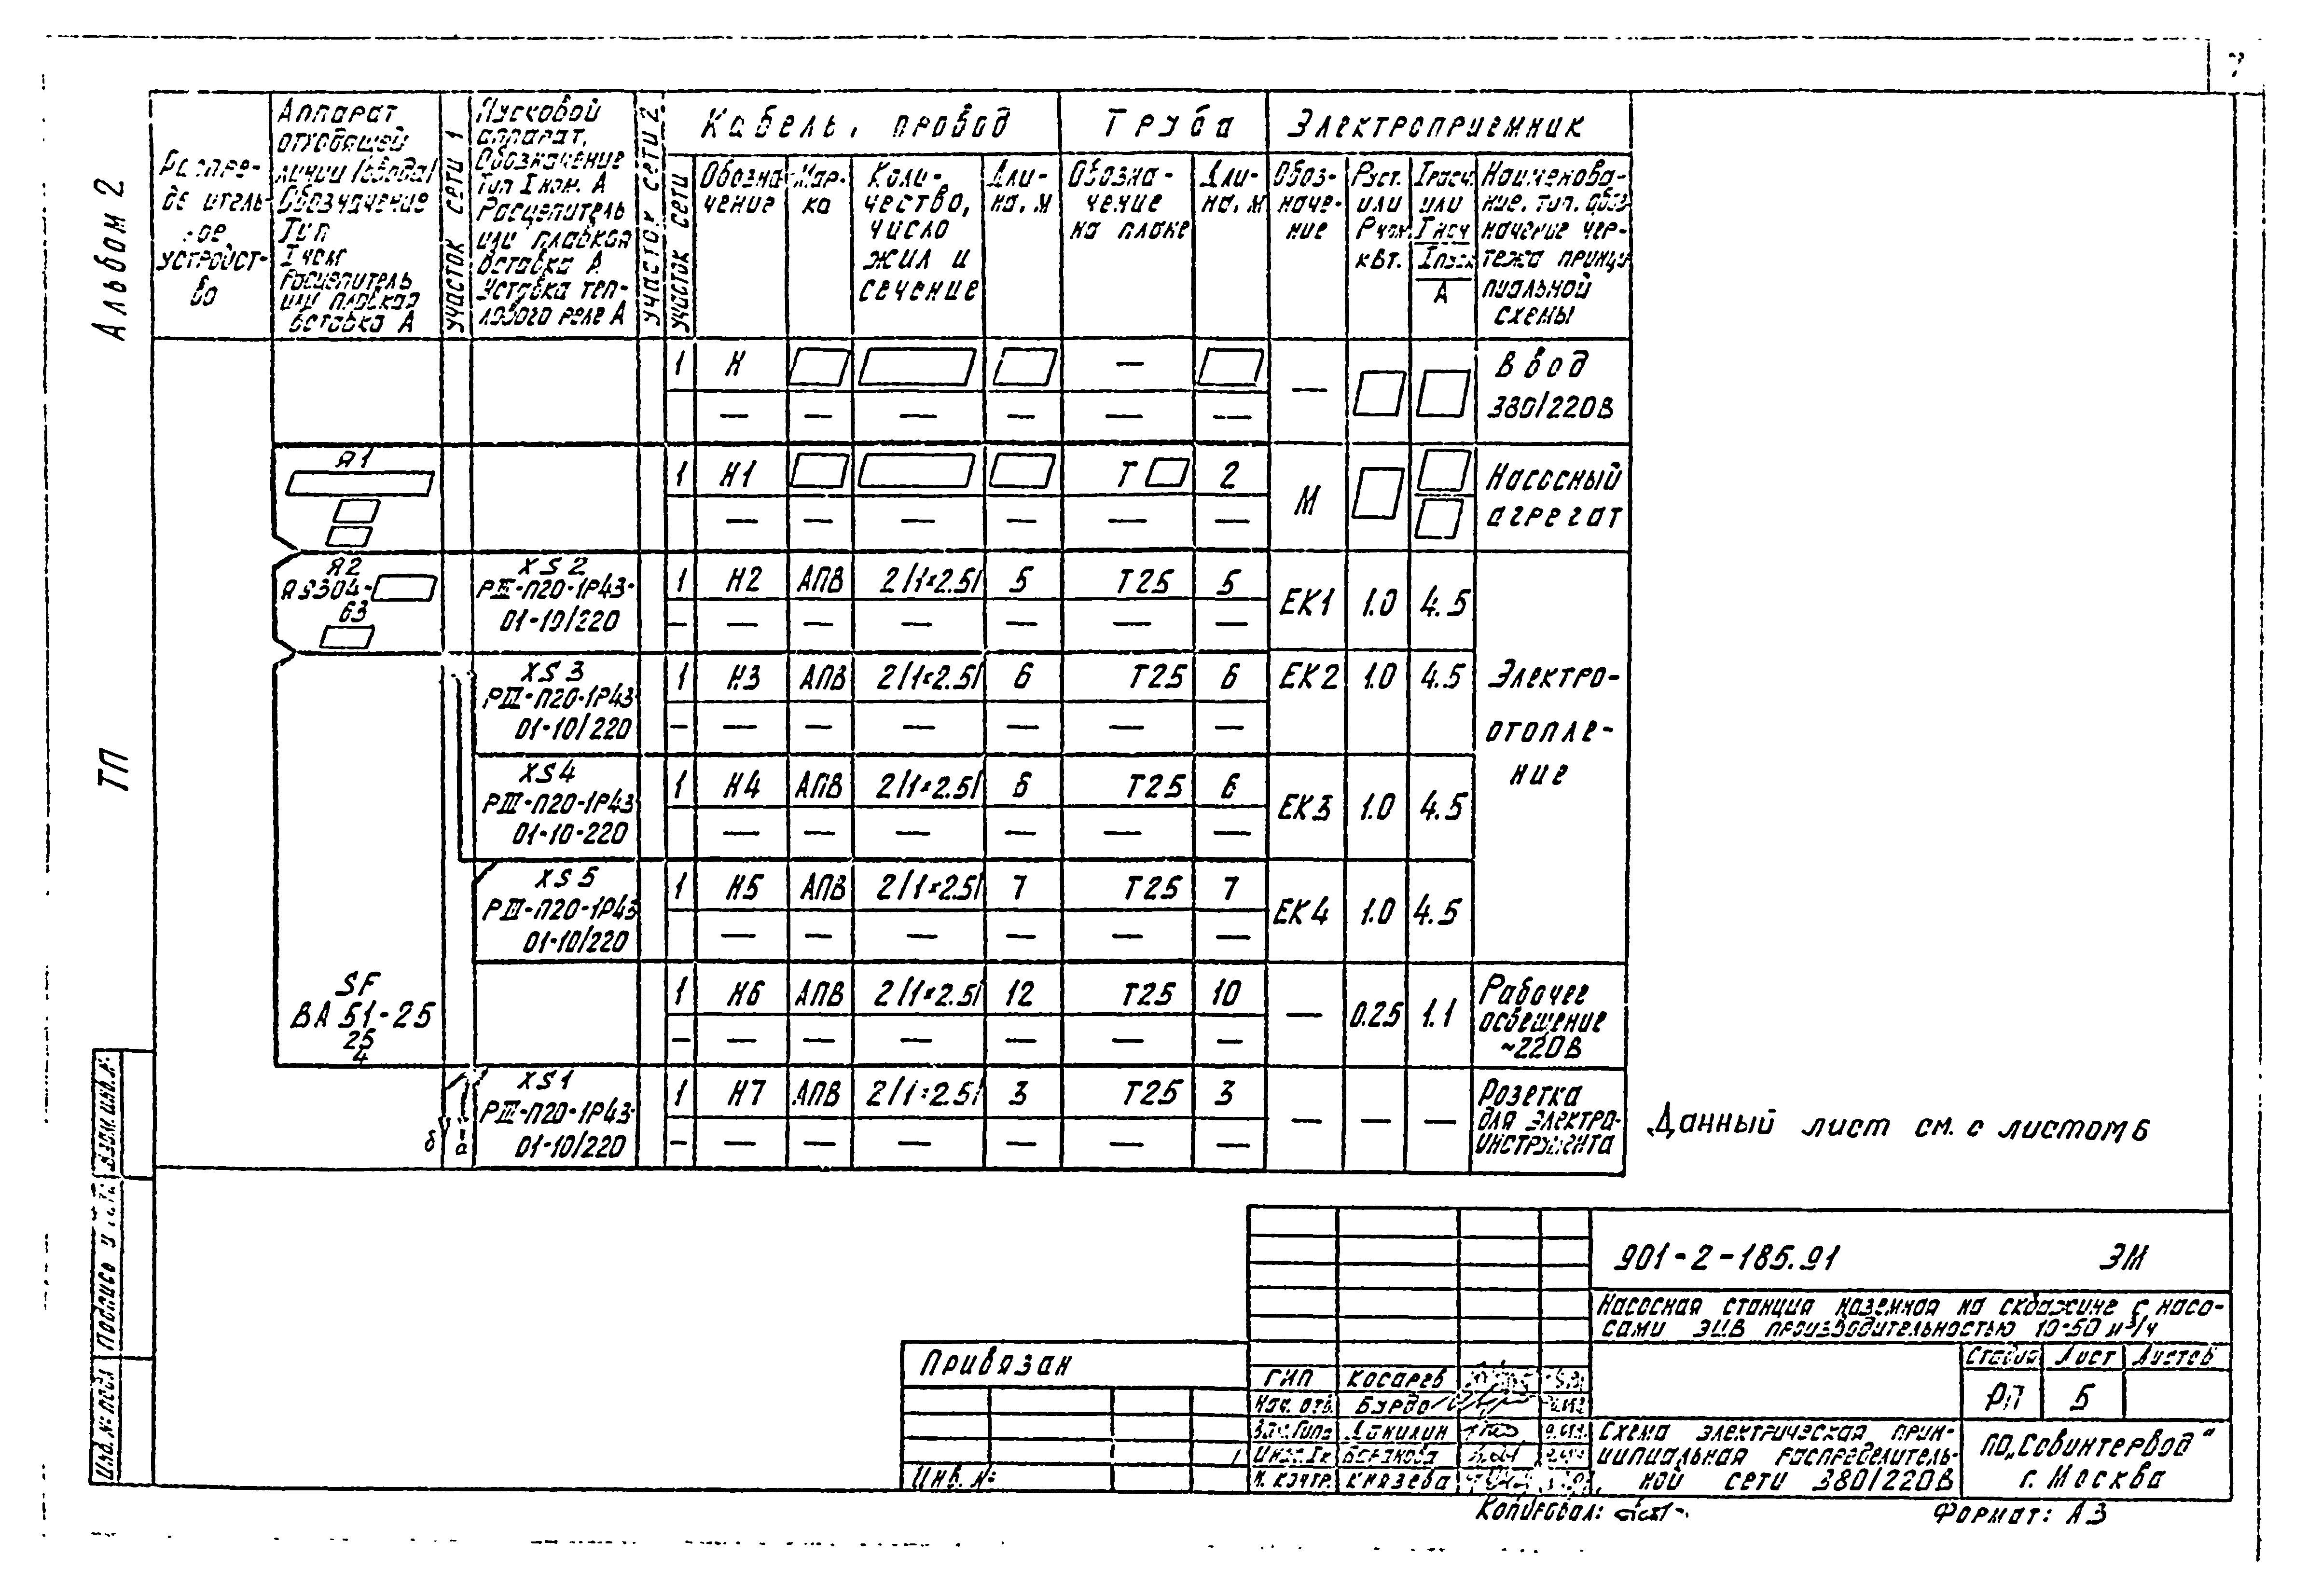 7
Альбом 2
ТП
Распре-
де ительное
устройст-
во
Аппарат
отходящей
линии /ввода/
Обозначение
Тип
I ном
Расцепитель
или плавкая
вставка А
участок сети 1
Пусковой
аппарат,
Обозначение
тип I ном. А
Расцепитель
или плавкая
вставка А
Уставка теп-
лового реле А
участок сети 2
Кабель, провод
Труба
Электроприемник
участок сети
Обозна-
чение
Мар-
ка
Коли-
чество,
число
жил и
сечение
Дли-
на, м
Обозна-
чение
на плане
Дли-
на, м
Обоз-
наче-
ние
Руст.
или
Рном.
кВт.
Iрасч.
или
Iном
Iпуск
А
Наименова-
ние, тип, обоз-
начение чер-
тежа принци-
пиальной
схемы
1 Н — —
Ввод
380/220В
— — — — — —
Я1
1 Н1 Т 2 М
Насосный
агрегат
— — — — — —
Я2
Я5304-
63
XS2
РШ-П20-1Р43-
01-10/220
1 Н2 АПВ 2/1×2.5/ 5 Т25 5 ЕК1 1.0 4.5
— — — — — — —
XS3
РШ-П20-1Р43
01-10/220
1 Н3 АПВ 2/1×2.5/ 6 Т25 6 ЕК2 1.0 4.5
Электро-
отопле-
ние
— — — — — — —
XS4
РШ-П20-1Р43
01-10-220
1 Н4 АПВ 2/1×2.5/ 6 Т25 6 ЕК3 1.0 4.5
— — — — — —
XS5
РШ-П20-1Р43
01-10/220
1 Н5 АПВ 2/1×2.5/ 7 Т25 7 ЕК4 1.0 4.5
— — — — — —
SF
ВА 51-25
25
4
1 Н6 АПВ 2/1×2.5/ 12 Т25 10 — 0.25 1.1
Рабочее
освещение
~220В
— — — — — — —
XS1
РШ-П20-1Р43-
01-10/220
б а
1 Н7 АПВ 2/1×2.5/ 3 Т25 3 — — —
Розетка
для электро-
инструмента
— — — — — — —
Данный лист см. с листом 6
Взам. инв. №
Подпись и
Инв. № подл
901-2-185.91 ЭМ
Насосная станция наземная на скважине с насо-
сами ЭЦВ производительностью 10-50 м³/ч
Привязан
Инв. №
ГИП Косарев
Нач. отд. Бурдо
Данилин
Н. контр. Князева
Стадия Лист Листов
РП 5
Схема электрическая прин-
ципиальная распределитель-
ной сети 380/220В
ПО „Совинтервод"
г. Москва
Копировал:
Формат: А3